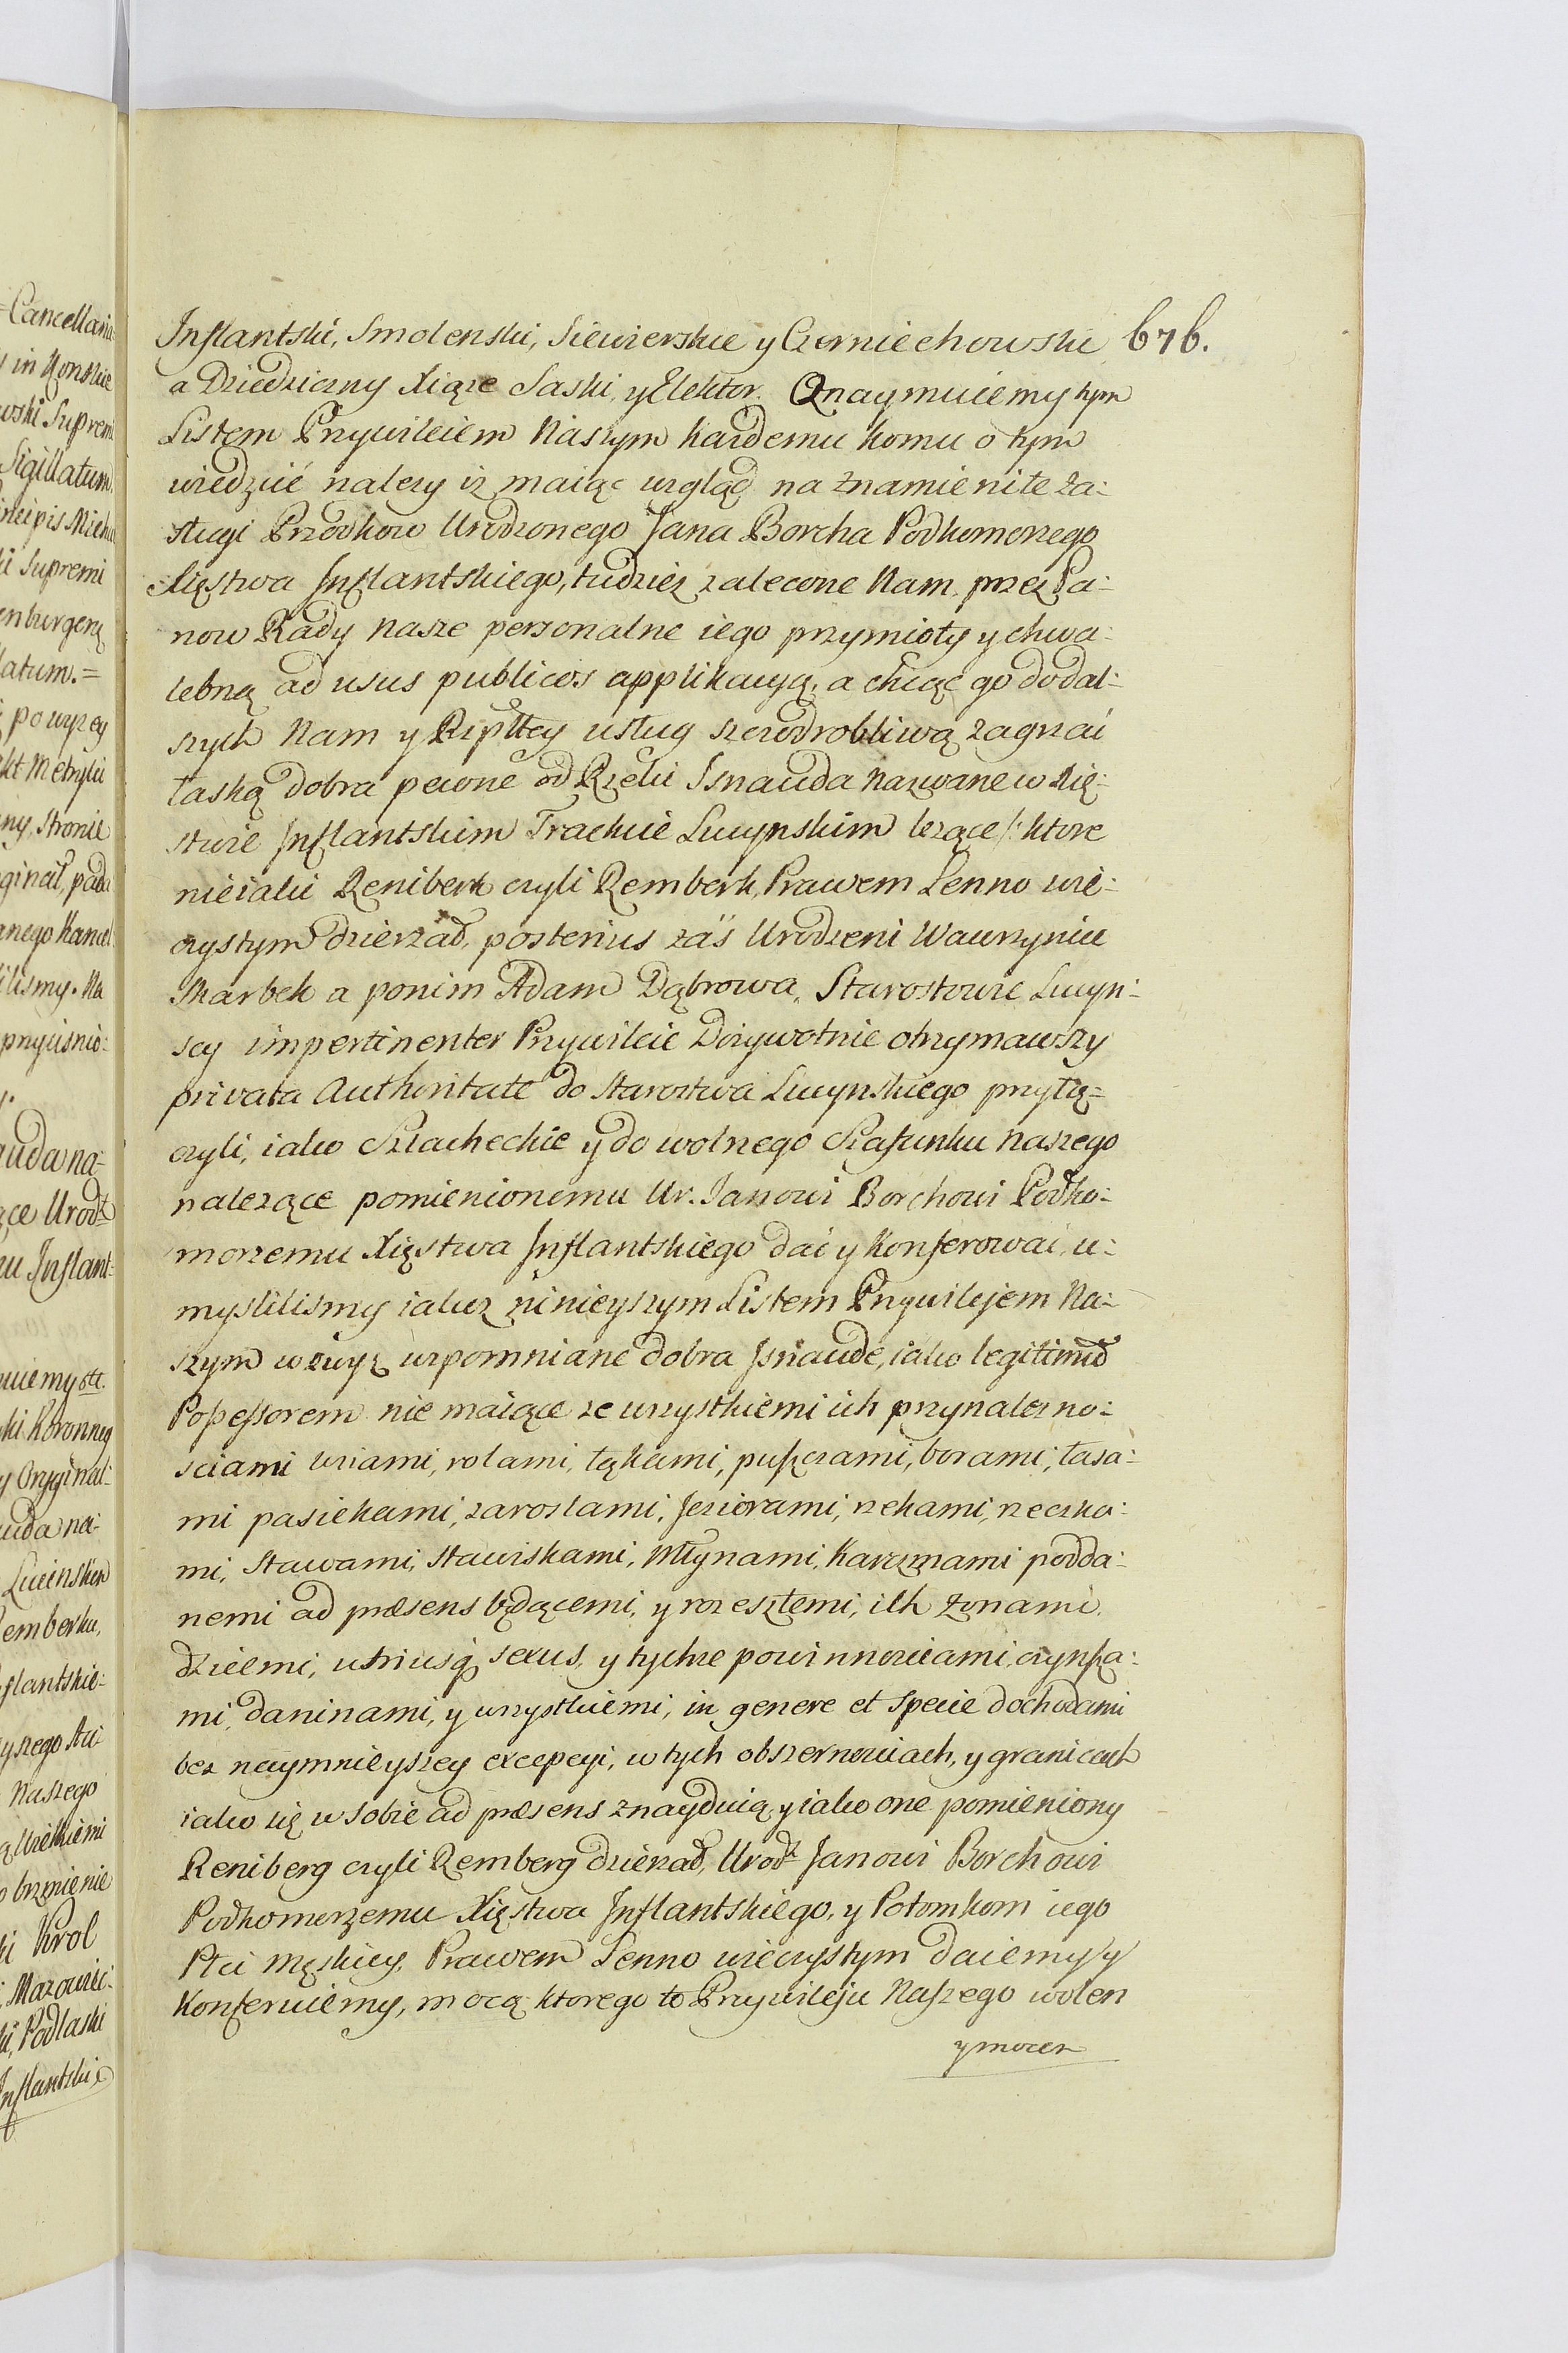 Inflantski, Smolenski, Siewierskie y Czerniechowski 676.
a Dziedziczny Xiąze Saski, y Elektor. Oznaymuiemy tym
Listem Przywileiem Naszym kazdemu komu o tym
wiedzieć nalezy iz maiąc wzgląd na znamienite za:
sługi Przodkow Urodzonego Jana Borcha Podkomorzego
Xięstwa Inflantskiego, tudziez zalecone Nam przez Pa:
now Rady Nasze personalne iego przymioty y chwa:
lebną ad usus publicos applikacyą, a chcąc go do dal:
szych Nam y Rzpltey usług szczodrobliwą zagrzać
łaską dobra pewne od Rzeki Isnauda Nazwane w Xię:
stwie Inflantskim Trackcie Lucynskim lezące /: ktore
nieiaki Reniberk czyli Remberk, Prawem Lenno wie:
czystym dzierzał, posterius zaś Urodzeni Wawrzyniec
Skarbek a ponim Adam Dąbrowa, Starostowie Lucyn:
scy impertinenter Przywileie Dozywotnie otrzymawszy
privata Authoritate do Starostwa Lucynskiego przyłą=
czyli, iako Szlacheckie y do wolnego Szafunku naszego
nalezące pomienionemu Ur. Janowi Borchowi Podko:
morzemu Xięstwa Inflantskiego dać y Konferować u:
myslilismy iakoz ninieyszym Listem Przywilejem Na:
szym wzwyz wzpomniane dobra Isnaude, iako legitimũ
Possessorem nie maiące ze wszystkiemi ich przynalezno:
sciami wsiami, rolami, łąkami, puszczami, borami, lasa:
mi pasiekami, zaroslami, Jeziorami, rzekami, rzeczka:
mi, Stawami, stawiskami, Młynami, Karczmami podda:
nemi ad præsens będącemi, y rozeszłemi, ich zonami,
dziećmi, utriusq sexus, y tychze powinnosciami, czynsza:
mi, daninami, y wszystkiemi, in genere et Specie dochodami
bez naymnieyszey excepcyi, w tych obszernosciach, y granicach
iako się w sobie ad præsens znayduią, y iako one pomieniony
Reniberg czyli Remberg dzierzał, Urodz Janowi Borchowi
Podkomorzemu Xięstwa Inflantskiego, y Potomkom iego
Płci Męskiey, Prawem Lenno wieczystym daiemy y
Konferuiemy, mocą ktorego to Przywileju Naszego wolen
y mocen